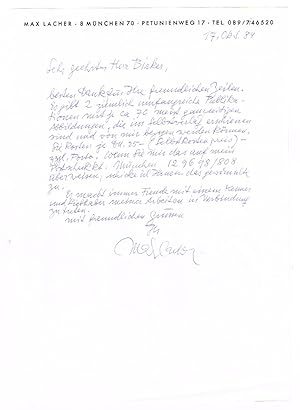 MAX LACHER - 8 MÜNCHEN 70 - PETUNIENWEG 17 - TEL 089/7146520
17. Okt. 84
Sehr geehrter Herr
besten Dank für Ihre freundlichen Zeilen.
Es gibt 2 ziemlich umfangreiche Publika-
tionen mit je ca 70 meist ganzseitigen
Abbildungen, die im Selbstverlag erschienen
sind und von mir bezogen werden können.
Sie kosten je DM. 25.- (Selbstkostenpreis) -
zzgl. Porto. Wenn Sie mir das auf mein
München 129698/808
überweisen, schicke ich Ihnen das gewünschte
zu.
Es macht immer Freude mit einem Kenner
und Liebhaber meiner Arbeiten in Verbindung
zu treten.
Mit freundlichen Grüssen
Ihr
Max Lacher